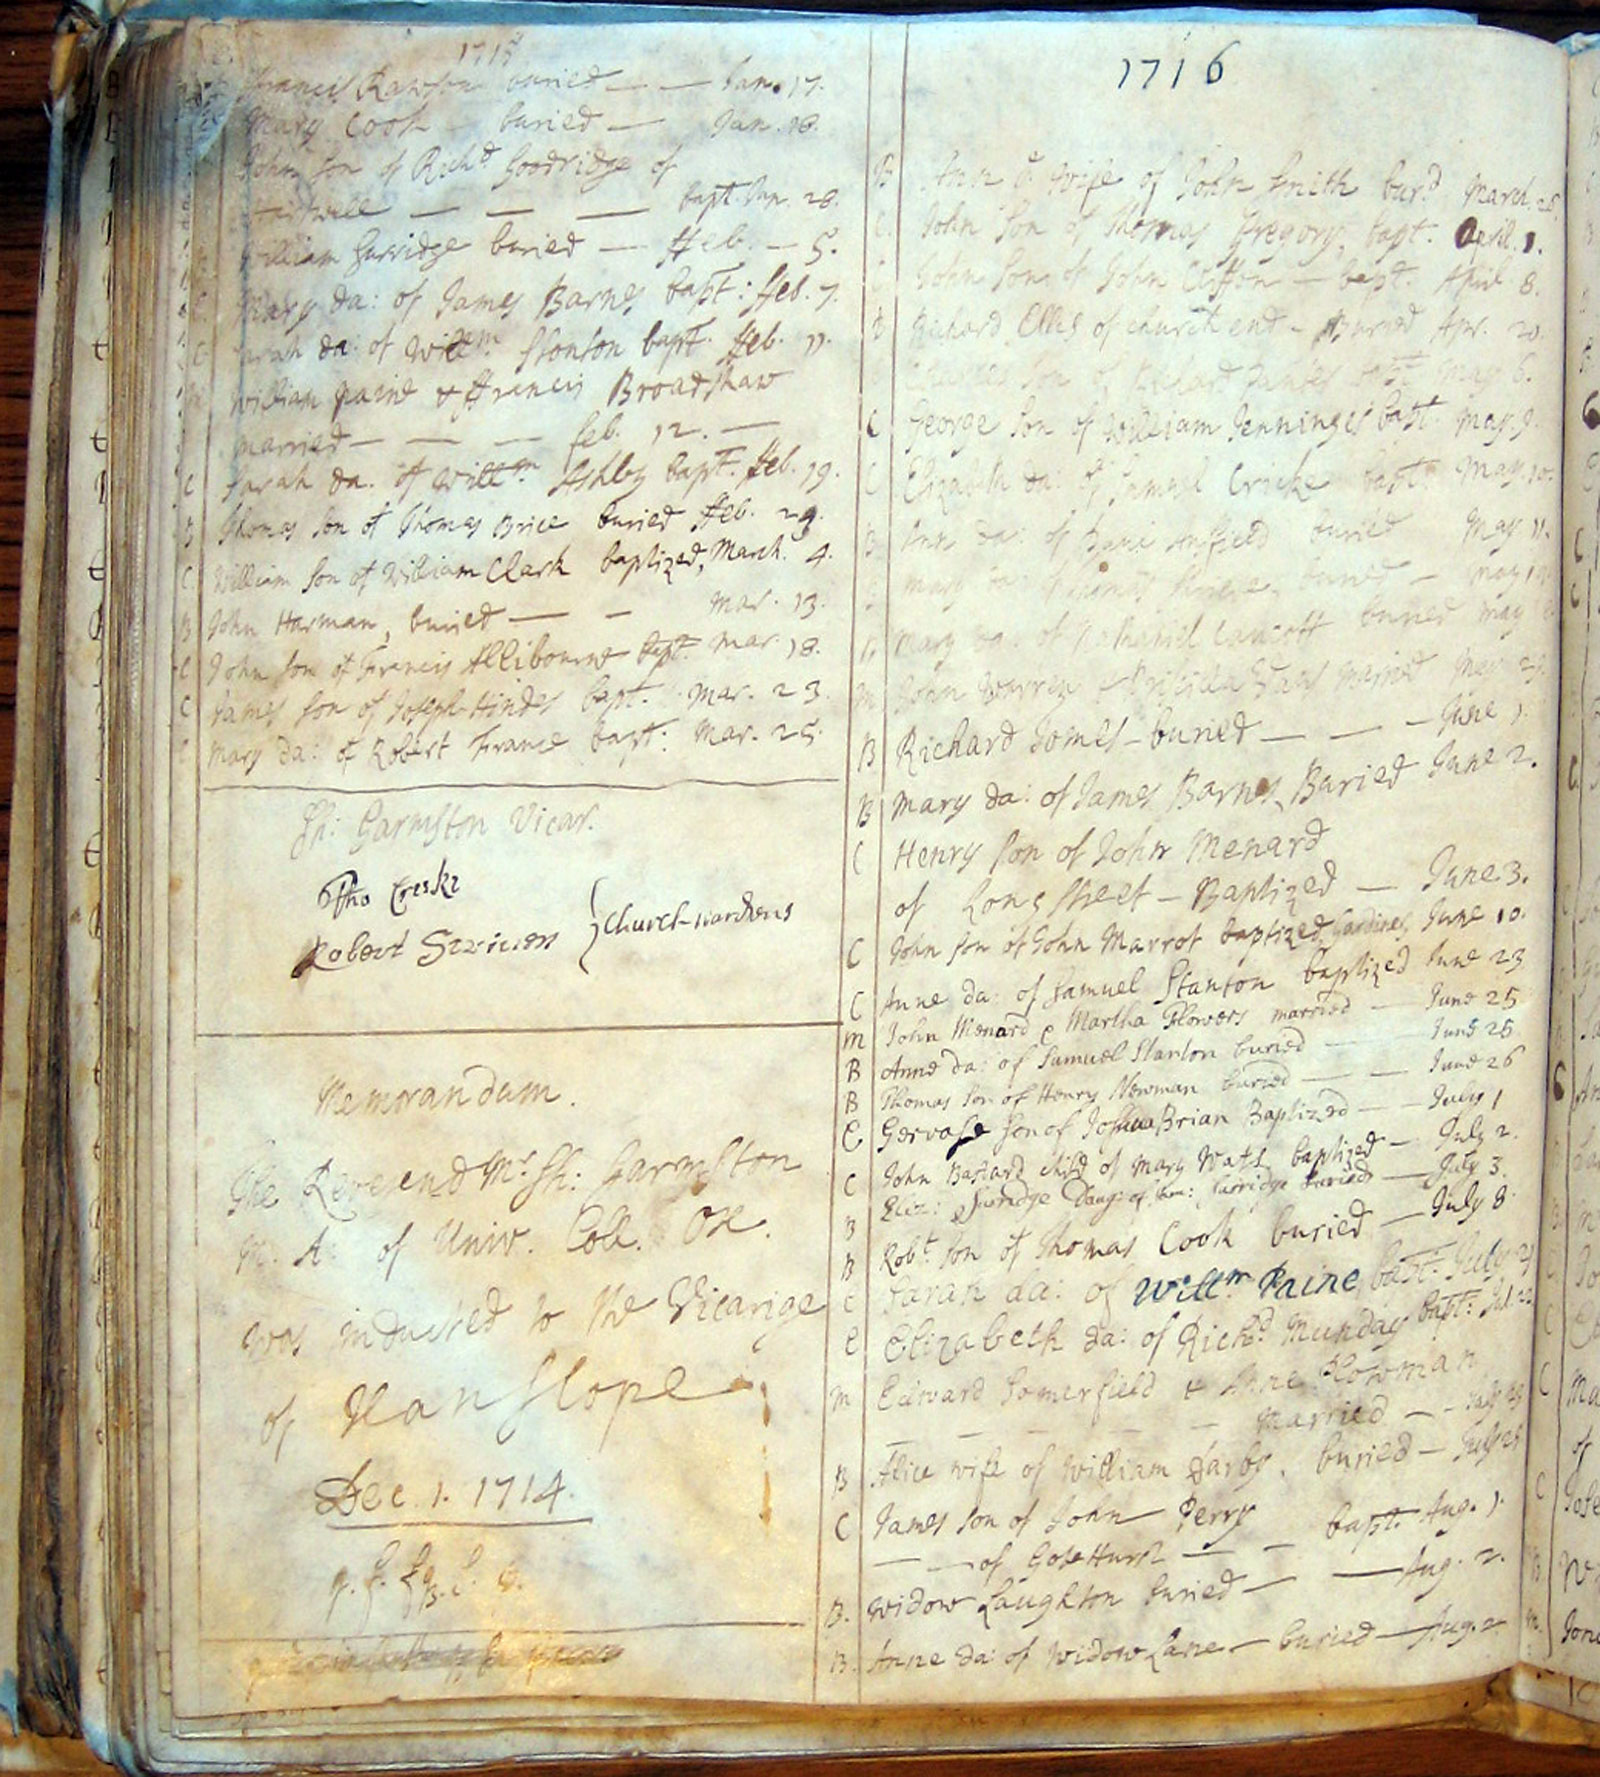 1715
Francis Rawson buried — — Jan. 17.
Mary Cook — buried — Jan. 18.
John son of Richd Goodridge of
— — — bapt. Jan. 28.
William Gurridge buried — Feb. — 5.
Mary da: of James Barnes bapt: Feb. 7.
C Sarah da: of Willm Stanton bapt. Feb. 11.
M William Paine & Francis Broadshaw
married — — — Feb. 12. —
C Sarah da. of Willm Ashby bapt. Feb. 19.
B Thomas son of Thomas Brice buried Feb. 29.
C William son of William Clark baptized, March. 4.
B John Harman, buried — — Mar. 13.
C John son of Francis Allibourne bapt. Mar. 18.
C James son of Joseph Hindes bapt. Mar. 23.
C Mary da: of Robert France bapt: Mar. 25.
Sh: Garmston Vicar.
Tho
Robert } Church-wardens
Memorandum.
The Reverend Mr Sh: Garmston
M. A: of Univ. Coll. Ox.
was inducted to the Vicarige
of Hanslope
Dec. 1. 1714.
1716
B Ann ye wife of John Smith burd March. 26.
C. John son of Thomas Gregory bapt. April. 1.
C John son of John Clifton — bapt. April 8.
B Richard Ellis of church end — Buried Apr. 20.
son of Richard bapt May 6.
C George son of William Jenninges bapt. May. 9.
C Elizabeth da: of Samuel Cricke bapt. May. 10.
B Ann da: of buried May 11.
Mary da: of Thomas buried — May
B Mary da: of Nathaniel buried May
M John Warren & Priscilla married May 29.
B Richard Jomes — buried — — — June 1.
B Mary da: of James Barnes Buried June 2.
C Henry son of John Menard
of Long street — Baptized — June 3.
C John son of John Marrot baptized, Gardiner, June 10.
C Anne da: of Samuel Stanton baptized June 23
M John Menard & Martha Flowers married — June 25
B Anne da: of Samuel Stanton buried — June 25
B Thomas son of Henry Newman buried — — June 26
C Gervase son of Joshua Brian Baptized — — July 1
C John Bastard child of Mary Wats baptized — July 2.
B Eliz: Surridge Daug: of Wm: Surridge buried — July 3.
B Robt son of Thomas Cook buried — July 8.
C Sarah da: of Willm Paine bapt. July 21
C Elizabeth da: of Richd Munday bapt: Jul. 22
M Edward Somerfield & Anne Plowman
— — — — married — — July 29
B Alice wife of William Darby. buried — July 29
C James son of John Perry
— — of Gotehurst — — bapt. Aug. 1.
B. Widow Laughton buried — — Aug. 2.
B. Anne da: of Widow Lane — buried — Aug. 2.